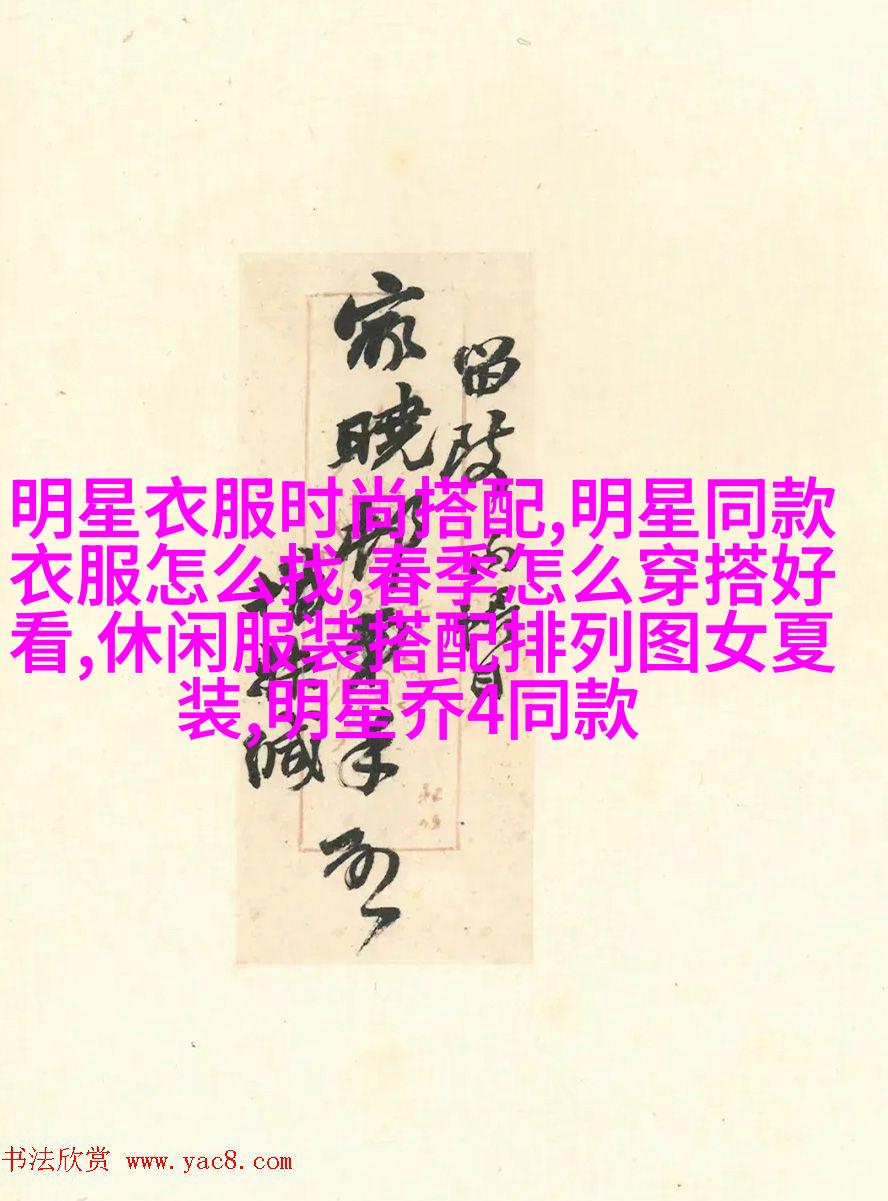 留陂
家晓
明星衣服时尚搭配,明星同款
衣服怎么找,春季怎么穿搭好
看,休闲服装搭配排列图女夏
装,明星乔4同款
书法欣赏 www.yac8.com